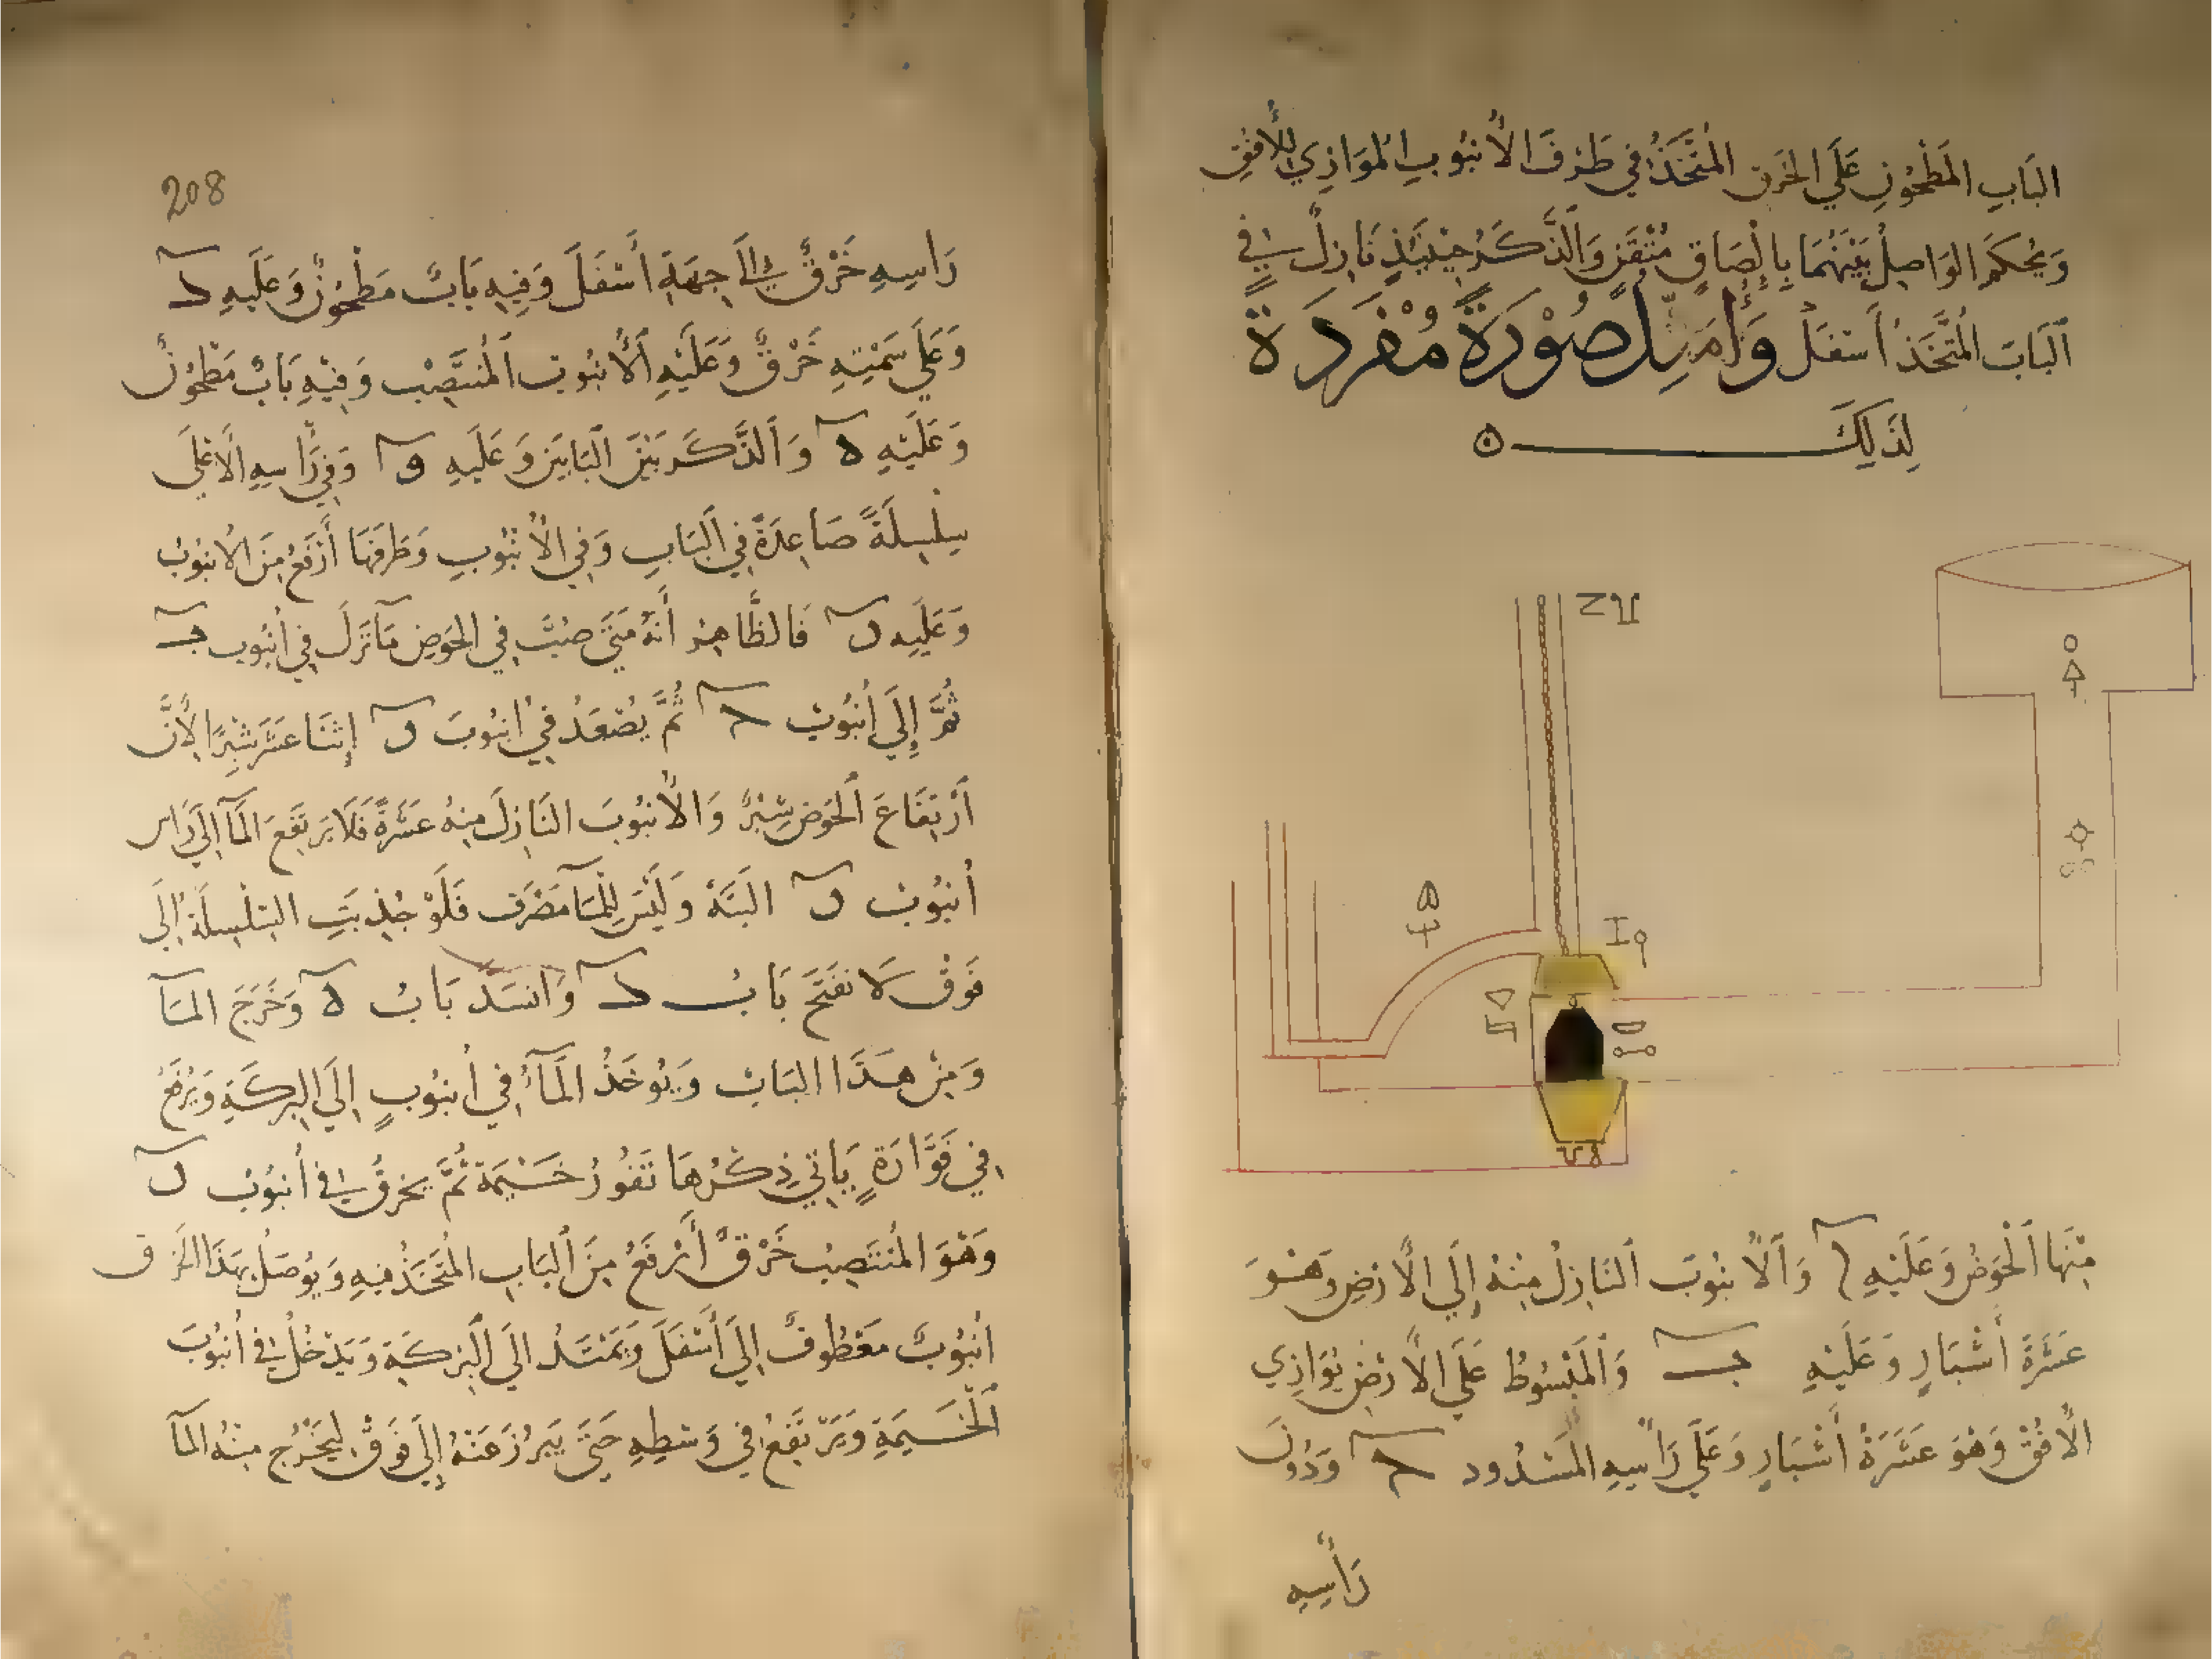 البَابِ المَطْحُونِ عَلَى الخَرقِ المُتَّخَذِ فِي طَرَفِ الأُنبُوبِ المُوَازِي لِلأُفُقِ
وَيُحكَمِ الوَاصِلُ بَيْنَهُمَا بِإِلْصَاقٍ مُتْقَنٍ وَالذَّكَرُ حِينَئِذٍ نَازِلٌ فِي
البَابِ المُتَّخَذِ أَسْفَلُ وَأُمَثِّلُ صُوْرَةً مُفْرَدَةً
لِذَلِكَ ه
مِنْهَا الْحَوضُ وَعَلَيْهِ ا وَالأُنبُوبُ النَازِلُ مِنْهُ إِلَى الأَرضِ وَهُوَ
عَشَرَةُ أَشْبَارٍ وَعَلَيْهِ ب وَالمَبْسُوطُ عَلَى الأَرضِ يُوَازِي
الأُفُقَ وَهُوَ عَشَرَةُ أَشْبَارٍ وَعَلَى رَأسِهِ المَسْدُود ح وَدُونَ
رَأسِهِ
208
رَاسِهِ خَرْقٌ إِلَى جِهَةِ أَسْفَلَ وَفِيهِ بَابٌ مَطْحُونٌ وَعَلَيهِ د
وَعَلَى سَمْتِهِ خَرْقٌ وَعَلَيْهِ الأُنبُوبُ المُنتَصِبُ وَفِيْهِ بَابٌ مَطْحُونٌ
وَعَلَيْهِ ه وَالذَّكَرُ بَيْنَ البَابَيْنِ وَعَلَيهِ و وَفِي رَأسِهِ الأَعْلَى
سِلْسِلَةٌ صَاعِدَةٌ فِي البَابِ وَفِي الأُنْبُوبِ وَطَرَفُهَا أَرْفَعُ مِنَ الأُنبُوبُ
وَعَلَيهِ ر فَالظَّاهِرُ أَنَّهُ مَتَى صُبَّ فِي الحَوضِ مَآ نَزَلَ فِي أُنبُوبِ ب
ثُمَّ إِلَى أُنْبُوبِ ح ثُمَّ يَصْعَدُ فِي أُنبُوبَ ر إِثنَا عَشَرَ شِبْرًا لأَنَّ
ارْتِفَاعَ الحَوضِ شِبْرٌ وَالأُنبُوبَ النَازِلَ مِنهُ عَشَرَةٌ فَلَا يَرتَفِعَ المَآ إِلَى رَاس
أُنبُوبُ ر البَتَّةَ وَلَيْسَ لِلْمَآ مَصْرَف فَلَوْ جُذِبَتِ السِّلْسِلَةُ إِلَى
فَوْق لَانفَتَحَ بَابُ د وَانسَدَّ بَابُ ه وَخَرَجَ المَآ
وَمِنْ هَذَا البَابِ وَيُوخَذُ المَآءُ فِي أُنبُوبٍ إِلَى البِركَةِ وَيُرفَعُ
فِي فَوَّارَةٍ يَاتِي ذِكْرُهَا تَفُورُ خَسْيمَة ثُمَّ يخرقُ فِي أُنبُوبُ ر
وَهُوَ المُنتَصِبُ خَرْقٌ أَرْفَعُ مِنَ البَابِ المُتَّخَذُ فِيهِ وَيُوصَلُ بِهَذَا الخَرق
أُنبُوبٌ مَعْطُوفٌ إِلَى أَسْفَلَ وَيَمْتَدُّ إِلَى البِرْكَةِ وَيَدْخُلُ فِي أُنبُوبَ
الْخَسِيمَةِ وَيَرتَفِعُ فِي وَسْطِهِ حَتَّى يَبرُزَ عَنْهُ إِلَى فَوْقُ لِيَخْرُجَ مِنْهُ المَآ